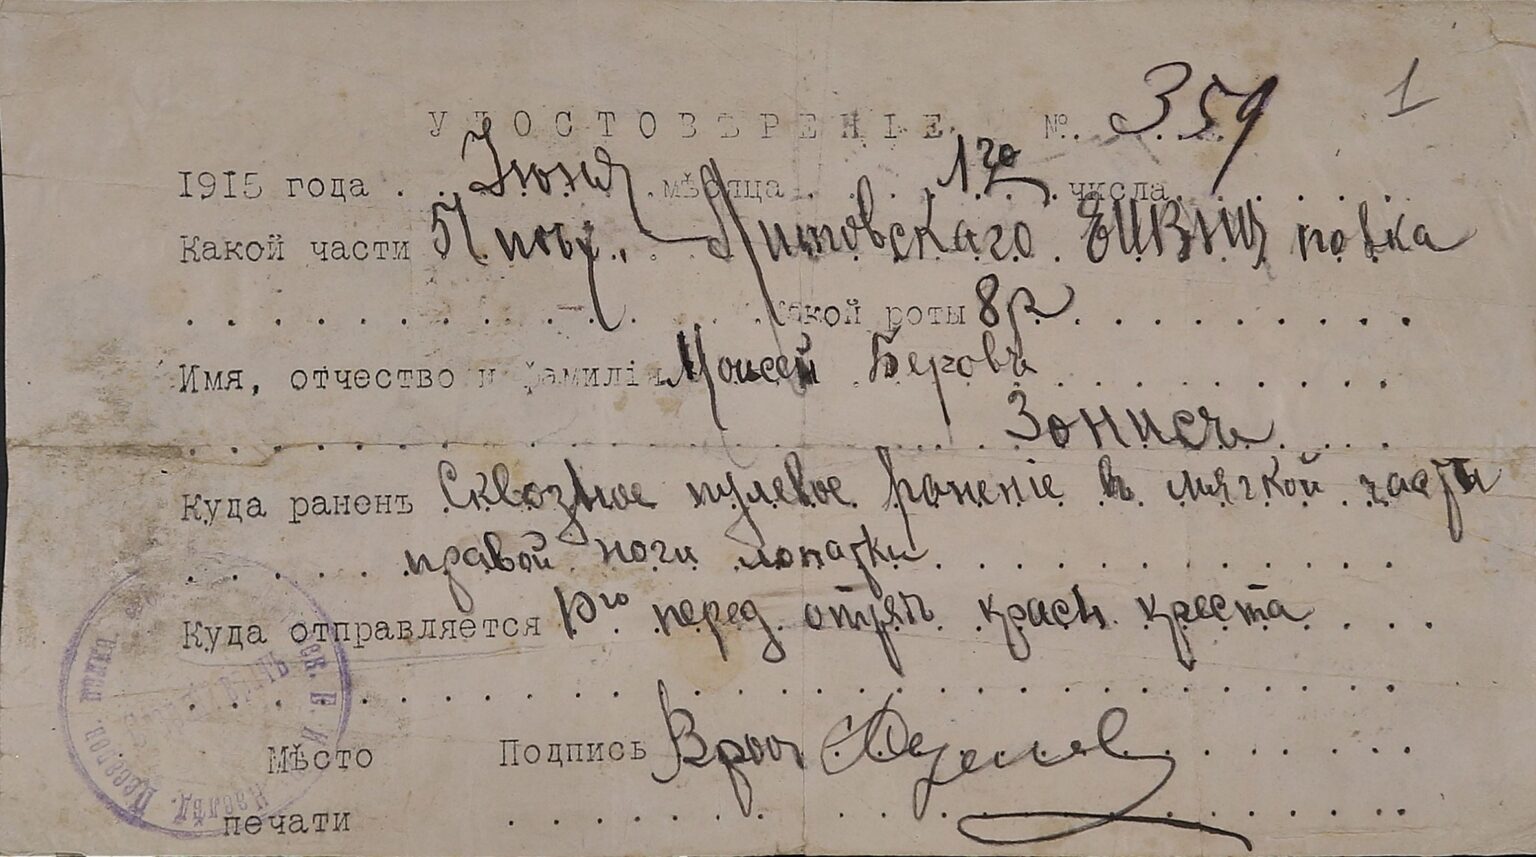 УДОСТОВѢРЕНІЕ №. 359 1
1915 года Іюня мѣсяца 1го числа
Какой части 51 пѣх. Литовскаго ЕИВНЦ полка
какой роты 8 р
Имя, отчество и фамилія Моисей Беровъ
Зонисъ
Куда раненъ Сквозное пулевое раненіе въ мягкой части
правой ноги лопатки
Куда отправляется 10го перед отрядъ красн креста
Мѣсто Подпись Врач
печати
полка Наслѣд. Цесаров. Е. И.